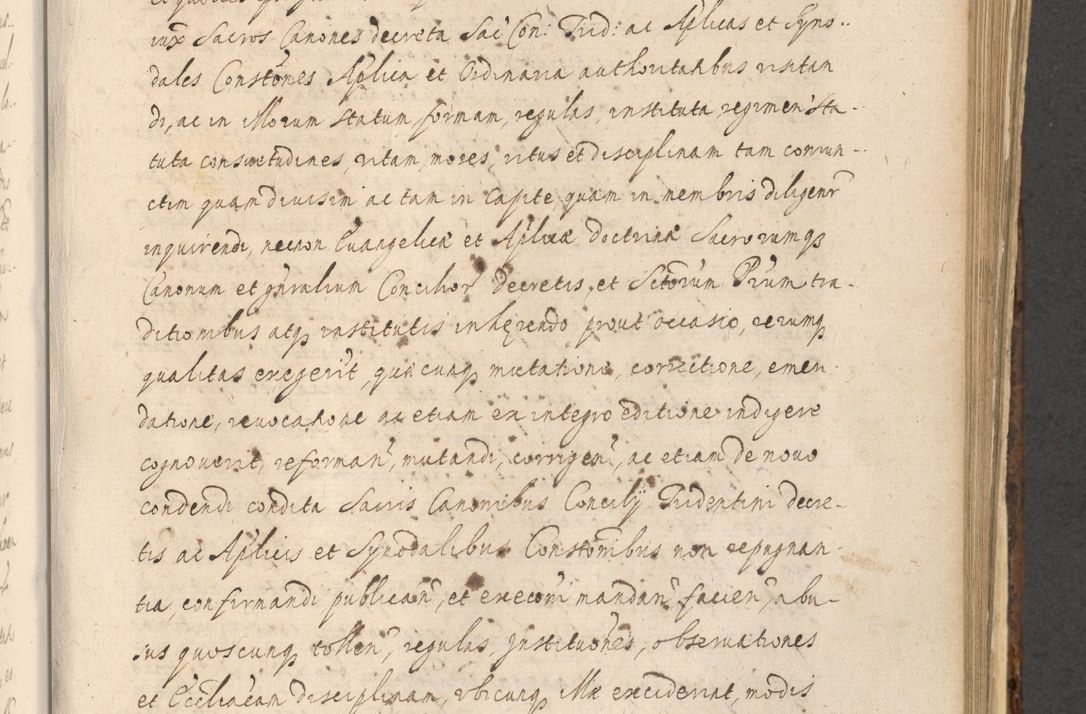 iux Sacros Canones decreta Sac Con: Trid: ac Aplicas et Syno-
dales Constões Aplica et Ordinaria authoritatibus visitan
di, ac in illorum statum, formam, regulas, instituta regimen sta-
tuta consvetudines, vitam, mores, ritus et disciplinam tam coniun-
ctim quam divisim ac tam in capite quam in membris diligenr
inquirendi, necnon Evangelicæ et Aplicæ doctrinæ Sacrorumq
Canonum et gñralium Concilior decretis, et Sctorum Prum tra-
ditionibus atq institutis inhęrendo prout occasio, rerumq
qualitas exegerit quæcunq mutatione, correctione, emen-
datione, revocatione ac etiam ex integro editione indigere
cognoverit, reforman, mutandi, corrigen, ac etiam de novo
condendi condita Sacris Canonibus Concilÿ Tridentini decre-
tis ac Aplicis et Synodalibus Constonibus non repugnan-
tia, confirmandi publican, et execoni mandan facien, abu-
sus quoscunq tollen, regulas, Institutiones, observationes
et Ecclicam disciplinam, vbicunq illæ exciderint, modis